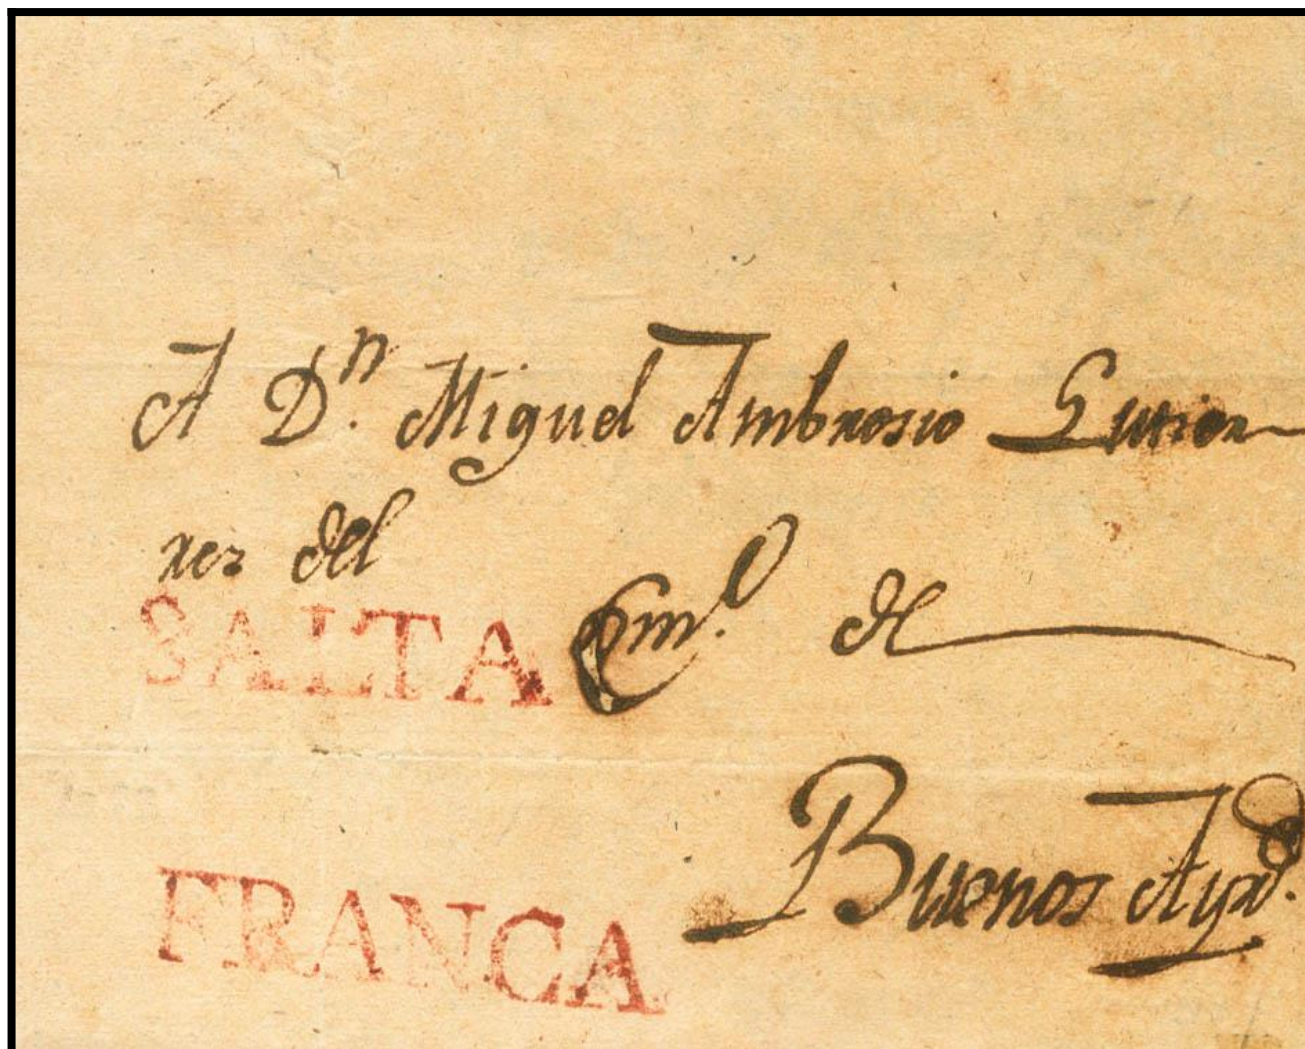 A Dn. Miguel Ambrosio Gutier
rez del
SALTA Comº. de
Buenos Ays.
FRANCA